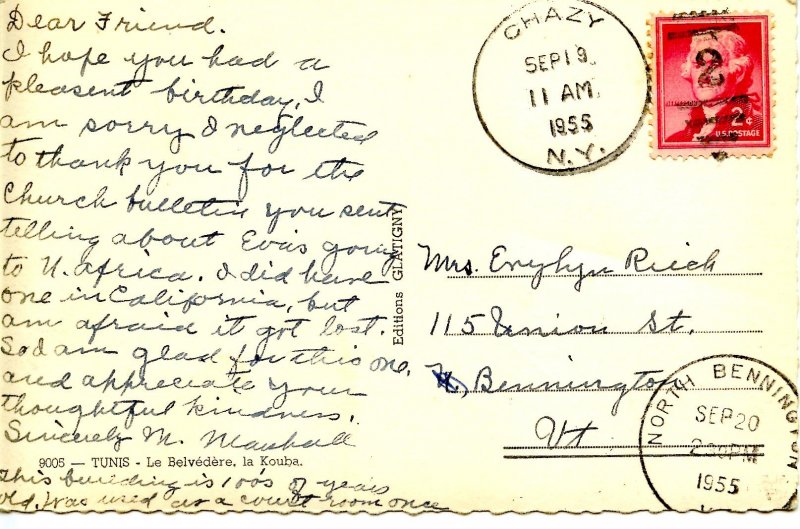 Dear Friend.
I hope you had a
pleasent birthday, I
am sorry I neglected
to thank you for the
Church bulletin you sent
telling about Eva's going
to N. Africa. I did have
one in California, but
am afraid it got lost.
So I am glad for this one,
and appreciate your
thoughtful kindness.
Sincerely M. Marshall
9005 — TUNIS - Le Belvédère, la Kouba.
This building is 100's of years
old, was used as a court room once
Editions GLATIGNY
CHAZY
SEP 19
11 AM
1955
N.Y.
2
2¢
U.S. POSTAGE
Mrs. Reich
115 Union St.
N. Bennington
Vt
NORTH BENNINGTON
SEP 20
PM
1955